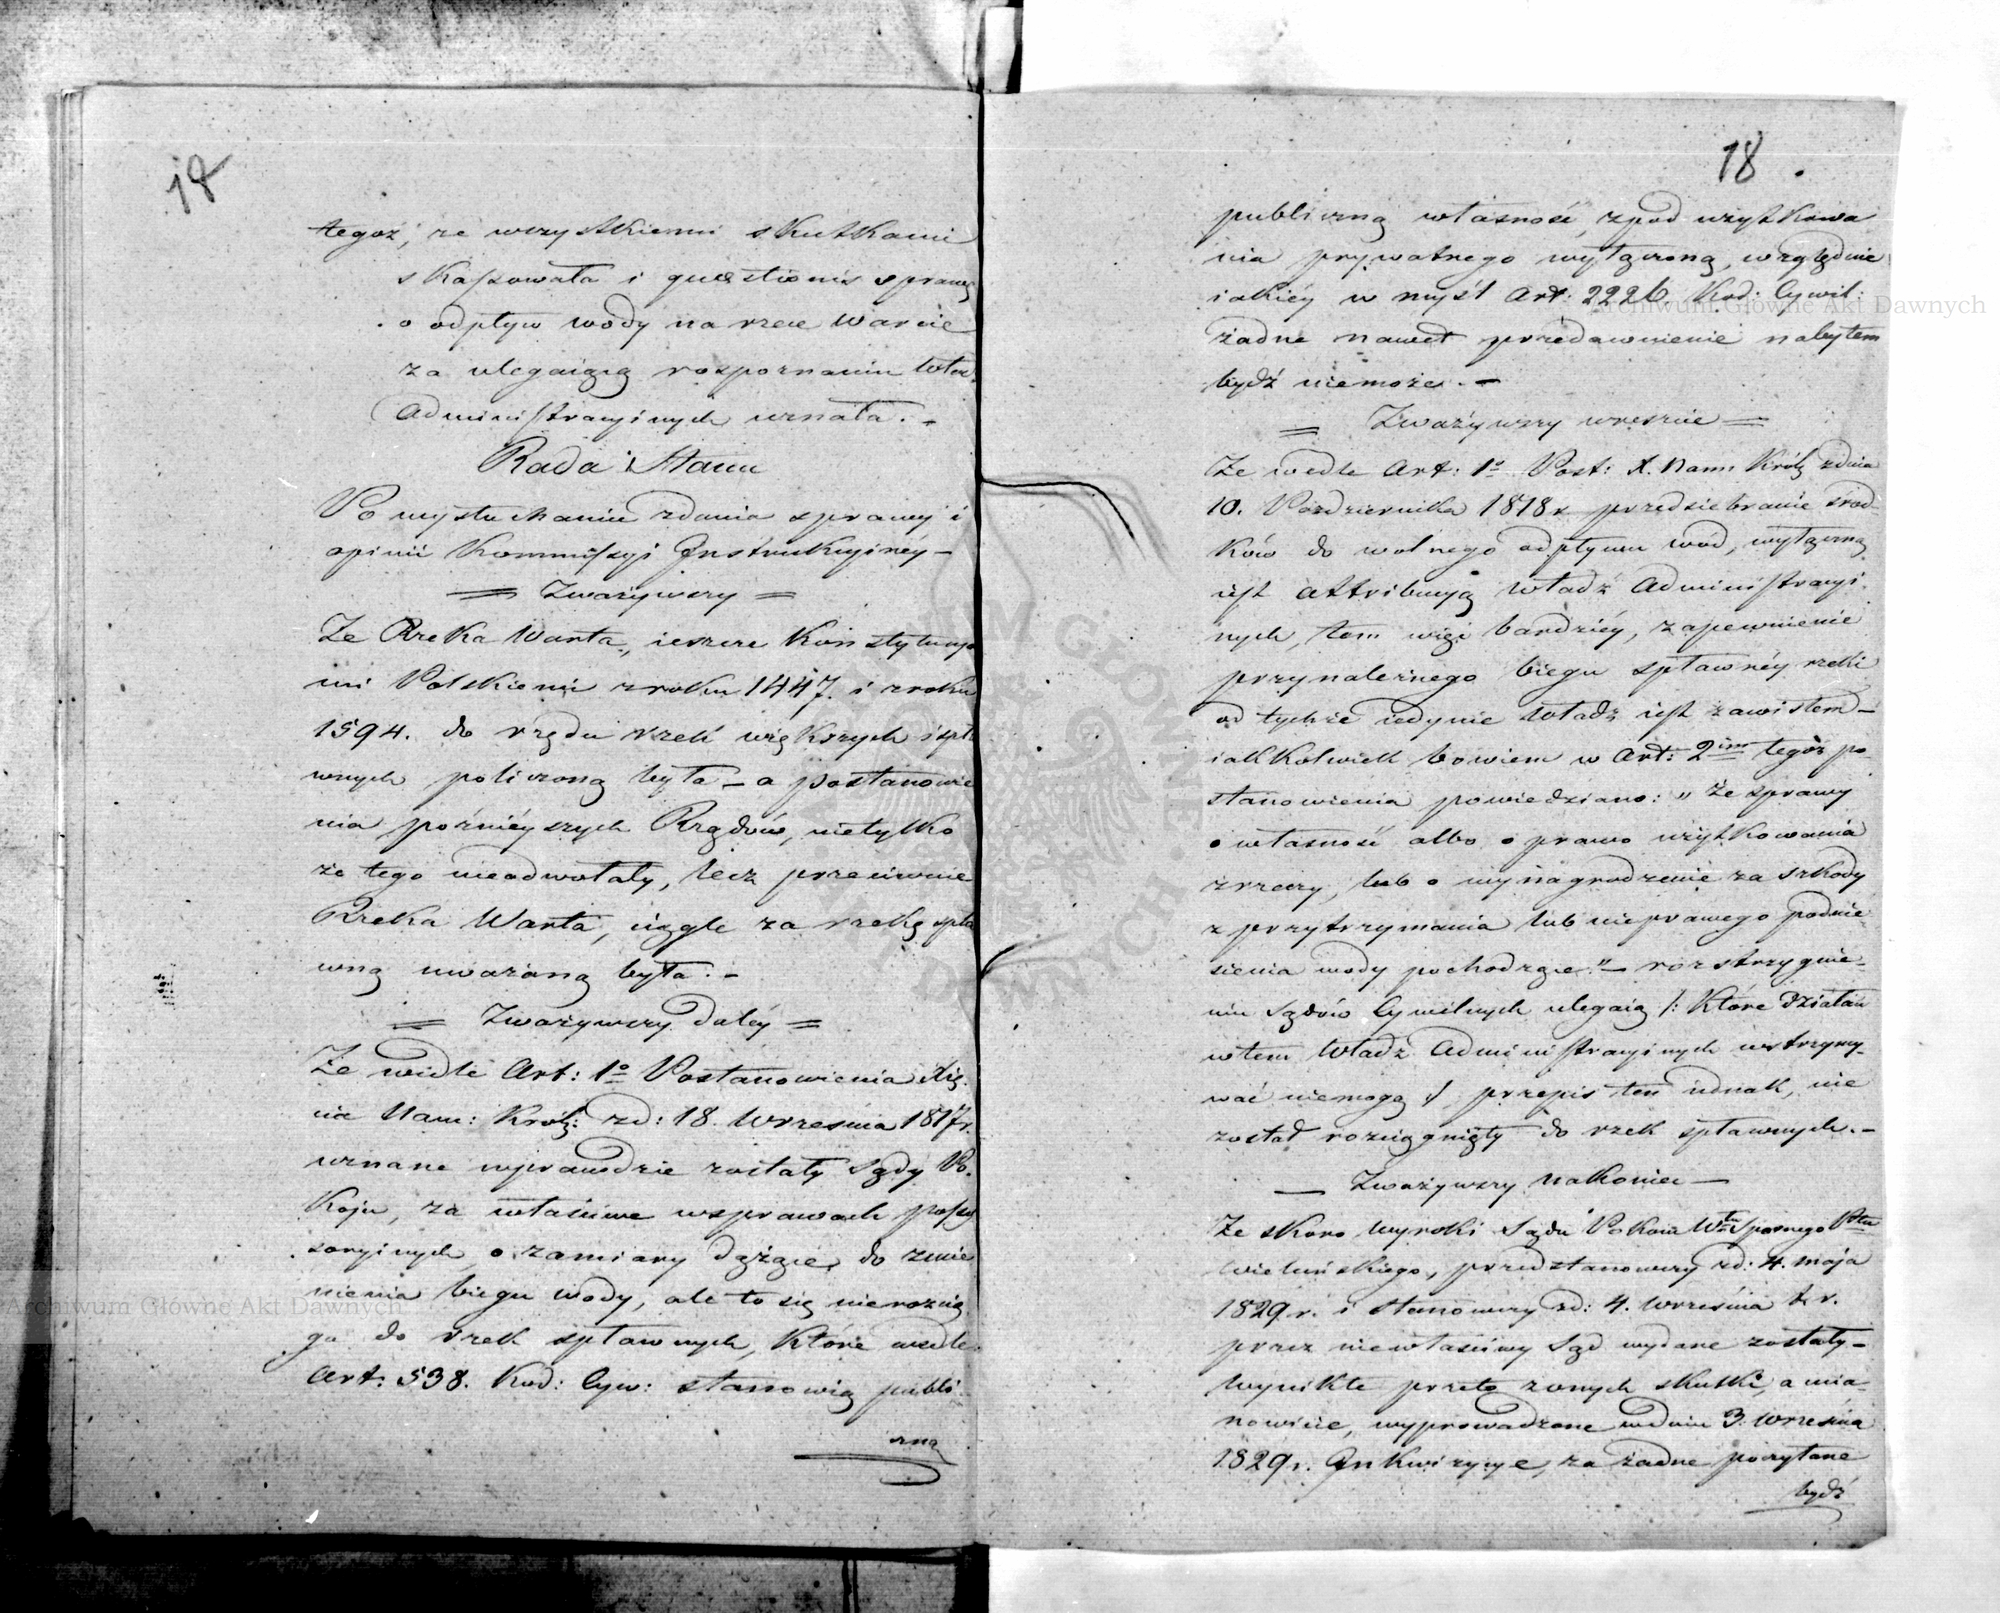 18
tegoż, ze wszystkiemi skutkami
skassowała i questionis sprawę
o odpływ wody na rzece Warcie
za ulegaiącą rospoznaniu Wład.
Administracyinych uznała. –
Rada Stanu
Po wysłuchaniu zdania sprawy i
opinii Kommissyi Instrukcyinéy –
= Zważywszy =
Że Rzeka Warta, ieszcze Konstytucya
mi Polskiemi z roku 1447. i z roku
1594. do rzędu rzek większych i spła
wnych policzoną była – a postanowie
nia poźniéyszych Rządów, nietylko
że tego nieodwołały, lecz przeciwnie
Rzeka Warta, ciągle za rzekę spła
wną uważaną była. –
= Zważywszy daléy =
Że wedle Art: 1o Postanowienia Xię.
cia Nam: Król: z d: 18. Września 1817r.
uznane wprawdzie zostały Sądy Po.
koju, za właściwe w sprawach posse
soryinych, o zamiary dążące do zmie
nienia biegu wody, ale to się nierozcią
ga do rzek spławnych, które wedle
Art: 538. Kod: Cyw: stanowią publi.
czną
18.
publiczną własność, z pod użytkowa
nia prywatnego wyłączoną, względnie
iakiéy w myśl Art: 2226. Kod: Cywil:
żadne nawet przedawnienie nabytem
bydź niemoże. –
= Zważywszy wreszcie =
Że wedle Art: 1o Post: X. Nam: Król: z dnia
10. Października 1818 r. przedsiebranie środ-
ków do wolnego odpływu wód, wyłączną
iest attribucyą Władz Administracyi
nych, tem więc bardziéy, zapewnienie
przynależnego biegu spławnéy rzeki
od tychże iedynie Władz iest zawisłem –
iakkolwiek bowiem w Art: 2im tegoż po
stanowienia powiedziano: „że sprawy
o własność albo o prawo użytkowania
z rzeczy, lub o wynagrodzenie za szkody
z przytrzymania lub nieprawego podnie
sienia wody pochodzące” – rozstrzygnie-
niu Sądów Cywilnych ulegaią /: które działań
w tem Władz Administracyinych wstrzymy-
wać niemogą :/ przepis ten iednak, nie
został rozciągnięty do rzek spławnych. –
– Zważywszy nakoniec –
Że skoro Wyroki Sądu Pokoiu Wtu Spornego Ptu
Wieluńskiego, przedstanowczy z d: 4. maja
1829. r. i stanowczy z d: 4. Września t. r.
przez niewłaściwy Sąd wydane zostały –
Wynikłe przeto z onych skutki, a mia-
nowicie, wyprowadzone w dniu 3. Września
1829 r. Inkwizycye, za żadne poczytane
bydź
Archiwum Główne Akt Dawnych
Archiwum Główne Akt Dawnych
ARCHIWUM GŁÓWNE AKT DAWNYCH